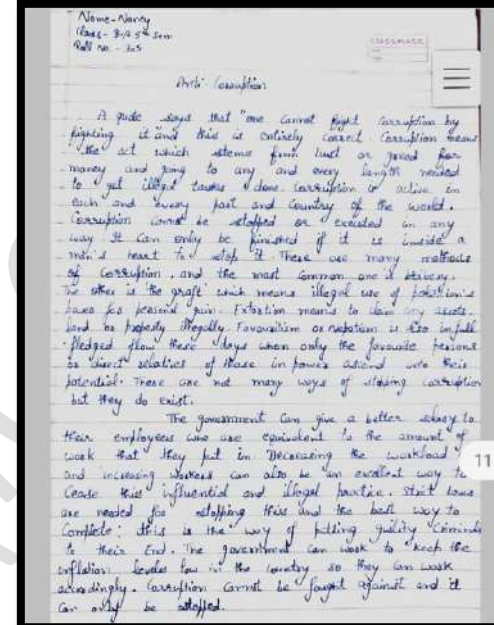 Name - Nancy
Class - B.A 5th Sem
Roll no. - 305
classmate
Anti Corruption
A quote says that "one cannot fight corruption by
fighting it" and this is entirely correct. Corruption means
the act which stems from lust or greed for
money and going to any and every length needed
to get illegal tasks done. Corruption is active in
each and every part and country of the world.
Corruption cannot be stopped or executed in any
way. It can only be finished if it is inside a
man's heart to stop it. There are many methods
of corruption, and the most common one is bribery.
The other is the graft which means illegal use of
for personal gain. Extortion means to claim any assets,
land or property illegally. Favouritism or nepotism is also in full
fledged flow these days when only the favourite persons
or direct relatives of those in power ascend unto their
potential. There are not many ways of stopping corruption
but they do exist.
The government can give a better salary to
their employees who are equivalent to the amount of
work that they put in. Decreasing the workload
and increasing workers can also be an excellent way to
cease this influential and illegal practice. Strict laws
are needed for stopping this and the best way to
Complete; this is the way of putting guilty criminals
to their End. The government can work to keep the
inflation levels low in the country so they can work
accordingly. Corruption cannot be fought against and it
can only be stopped.
11